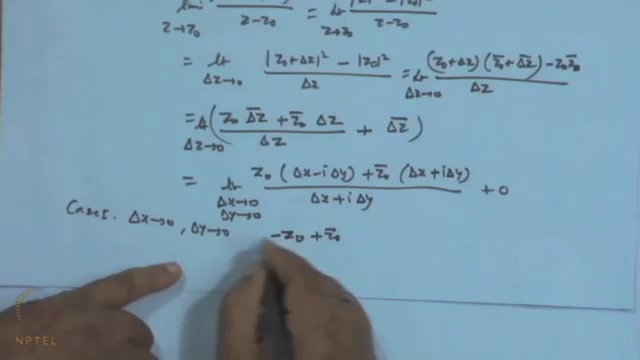 lim z→z₀ z-z₀ = lt z→z₀ z-z₀
= lt Δz→0 |z₀+Δz|² - |z₀|² / Δz = lt Δz→0 (z₀+Δz)(z̄₀+Δ̄z̄) - z₀z̄₀ / Δz
= lt Δz→0 ( z₀ Δ̄z̄ + z̄₀ Δz / Δz + Δ̄z̄ )
= lt Δx→0 Δy→0 z₀ (Δx-iΔy) + z̄₀ (Δx+iΔy) / Δx+iΔy + 0
Case I. Δx→0, Δy→0 -z₀ + z̄₀
NPTEL